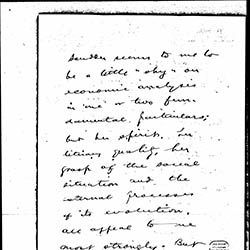 seems to me to
be a little "shy" on
economic analysis
in one or two fun-
damental particulars;
but her spirit, her
quality, her
grasp of the social
situation and the
internal processes
of its evolution,
all appeal to me
most strongly. But